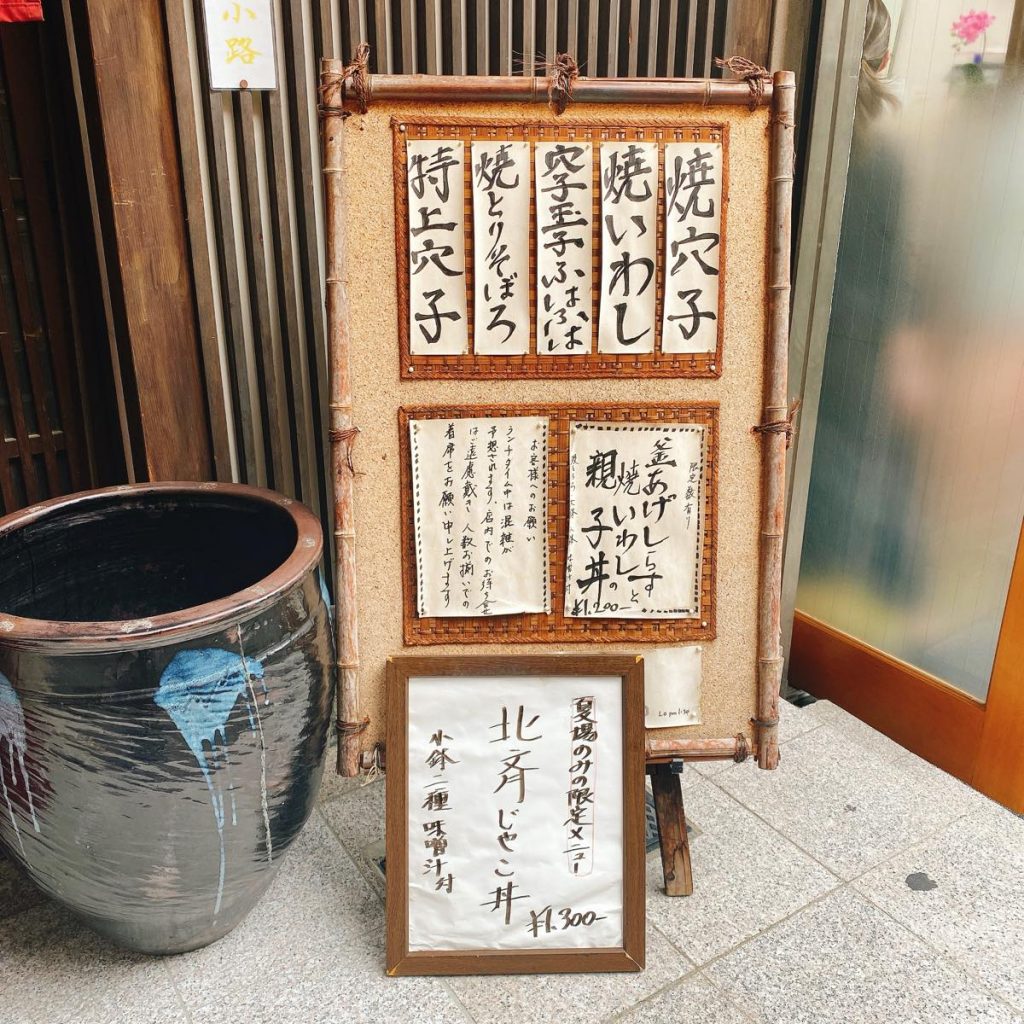 小路
焼穴子
焼いわし
穴子玉子ふはふは
焼とりそぼろ
特上穴子
限定数有り
釜あげしらすと
焼いわしの
親子丼
¥1,200-
お客様へのお願い
ランチタイム中は混雑が
予想されます、店内でのお待ち合せ
はご遠慮戴き 人数お揃いでの
着席をお願い申し上げます
夏場のみの限定メニュー
北斉じゃこ丼
¥1,300-
小鉢二種 味噌汁付